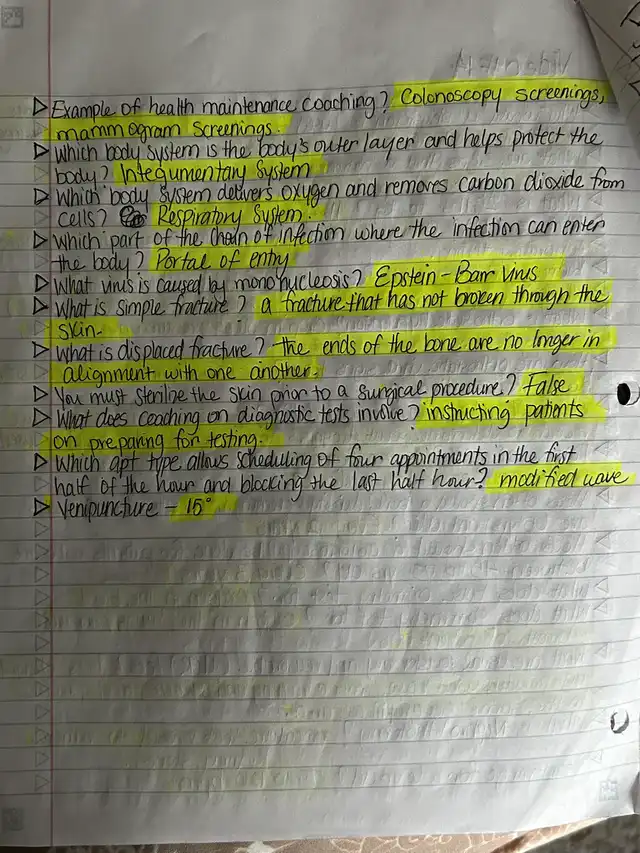 Example of health maintenance coaching? Colonoscopy screenings,
mammogram screenings.
Which body system is the body's outer layer and helps protect the
body? Integumentary System
Which body system delivers oxygen and removes carbon dioxide from
cells? Respiratory System.
Which part of the chain of infection where the infection can enter
the body? Portal of entry
What virus is caused by mononucleosis? Epstein-Barr virus
What is simple fracture? a fracture that has not broken through the
skin.
What is displaced fracture? the ends of the bone are no longer in
alignment with one another.
You must sterilize the skin prior to a surgical procedure? False
What does coaching on diagnostic tests involve? instructing patients
on preparing for testing.
Which apt type allows scheduling of four appointments in the first
half of the hour and blocking the last half hour? modified wave
Venipuncture - 15°